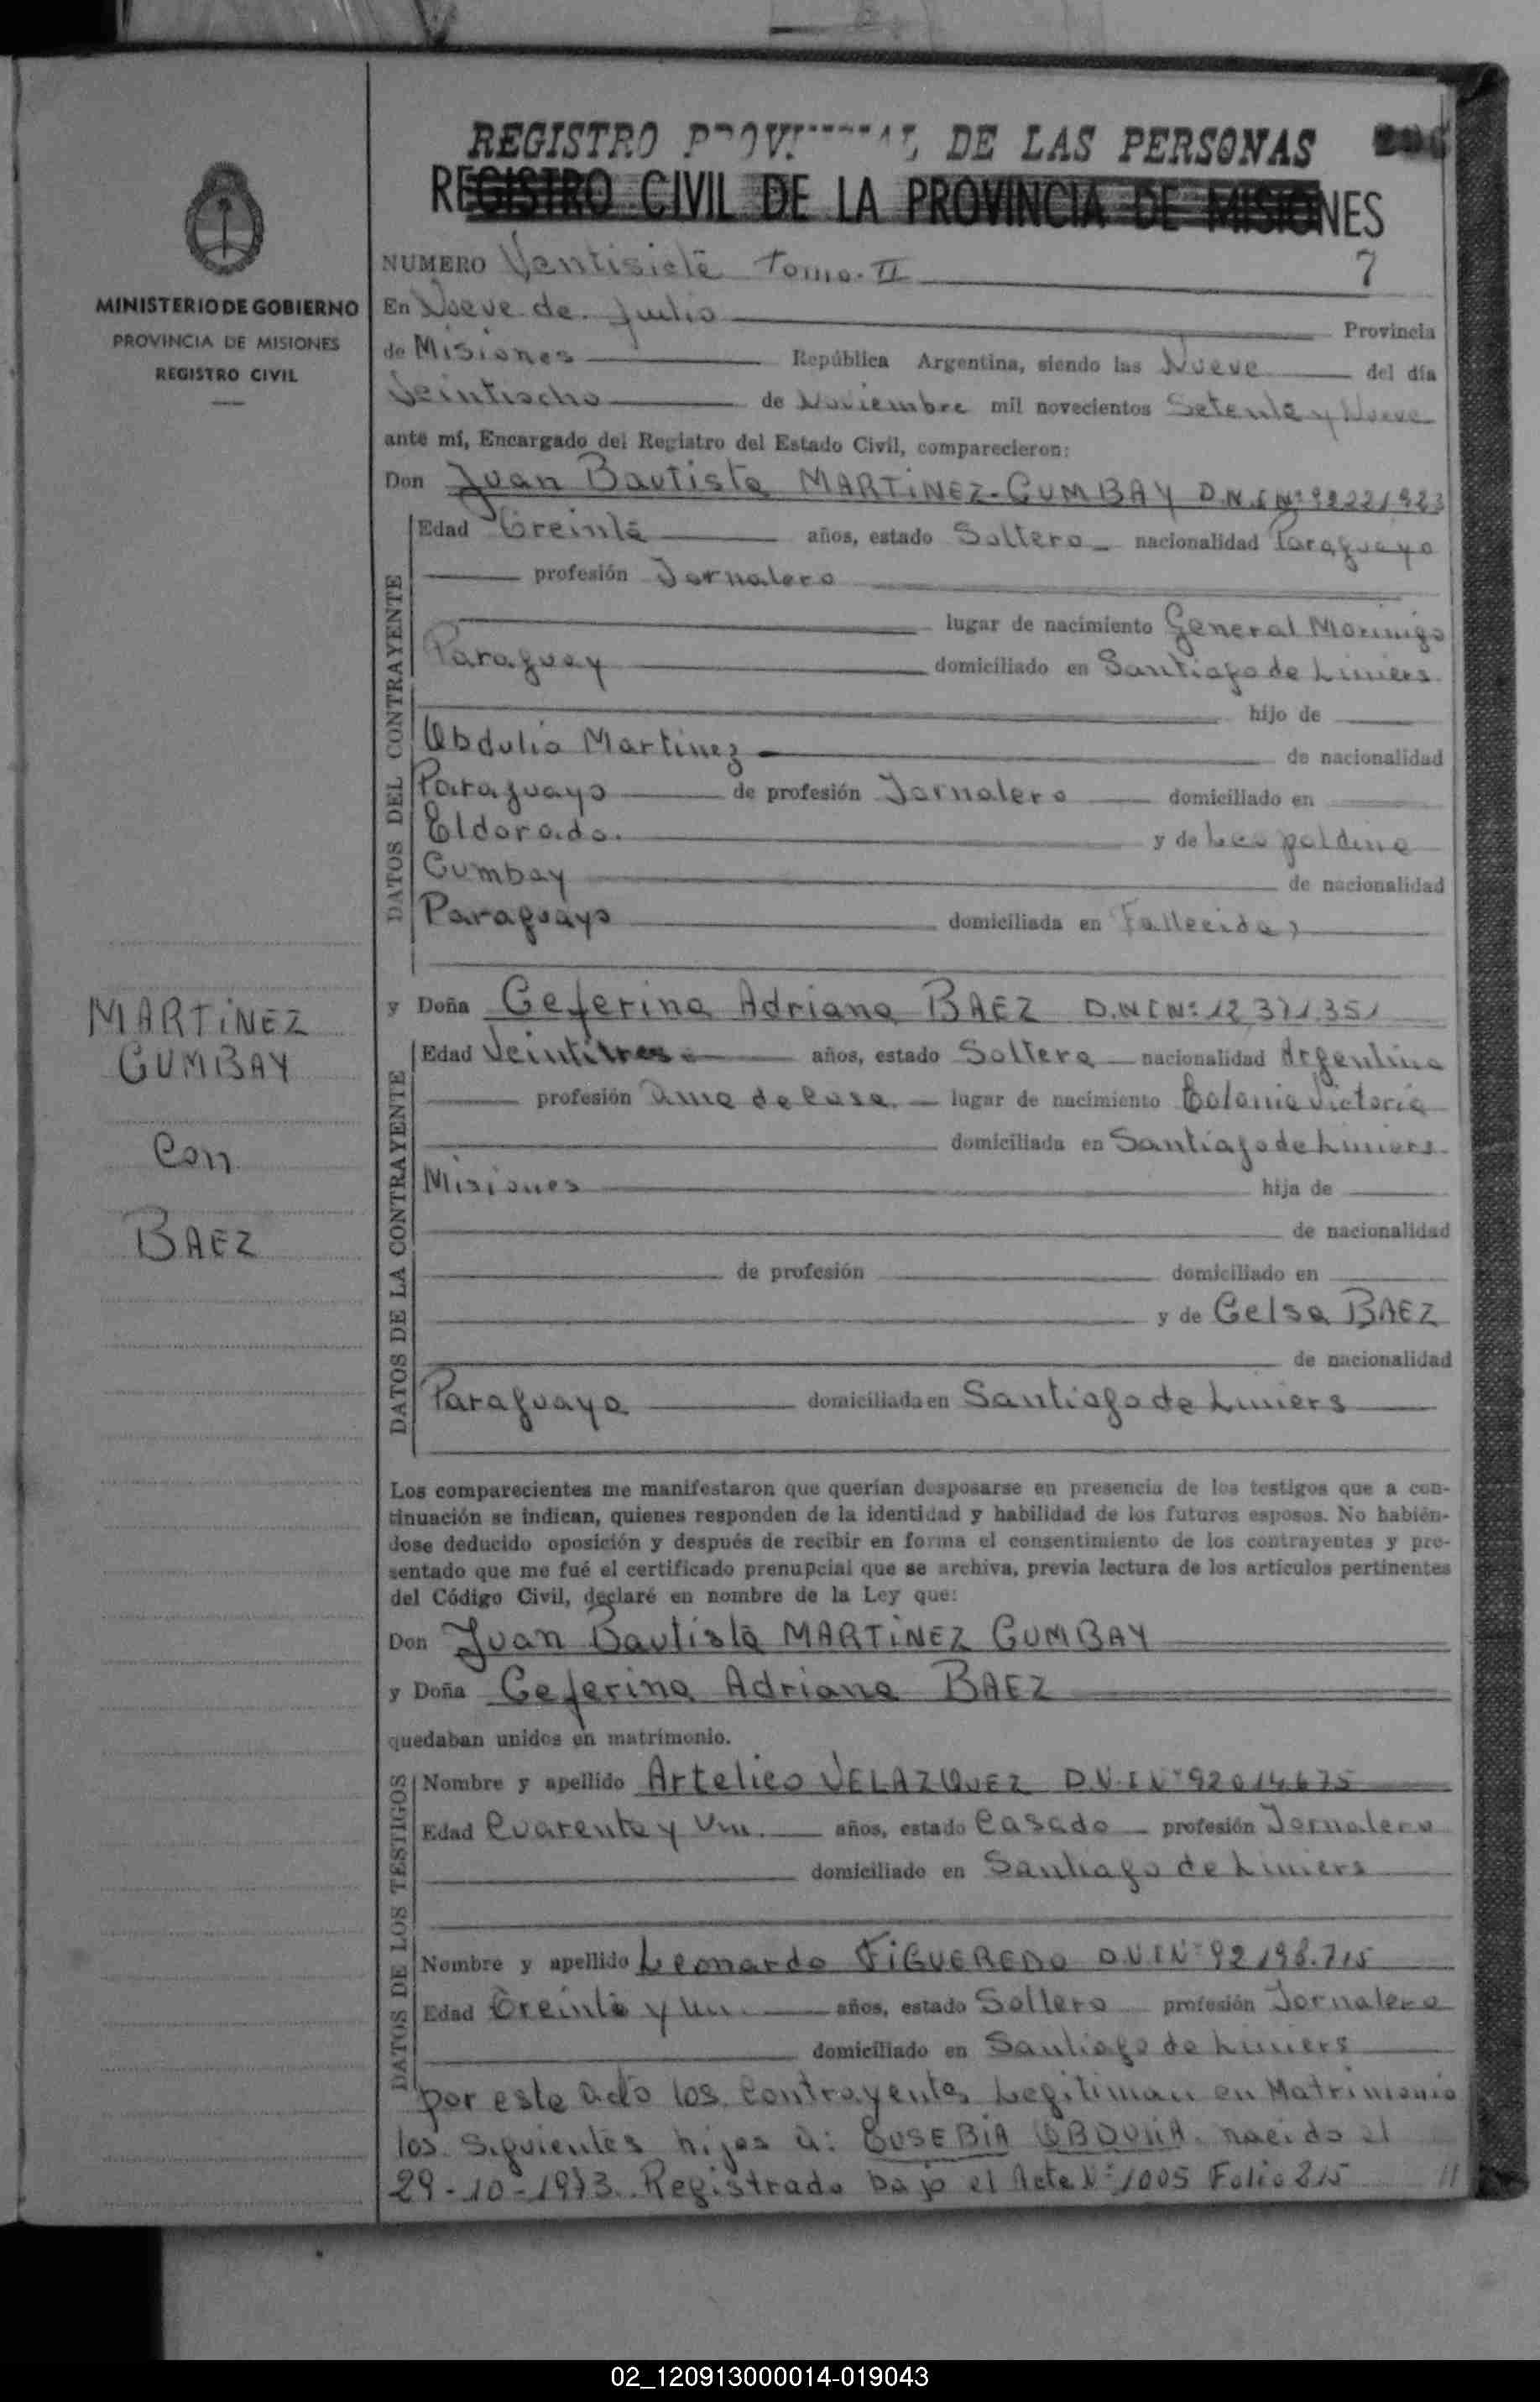 REGISTRO PROVINCIAL DE LAS PERSONAS
REGISTRO CIVIL DE LA PROVINCIA DE MISIONES
MINISTERIO DE GOBIERNO
PROVINCIA DE MISIONES
REGISTRO CIVIL
NUMERO Ventisiete Tomo-II 7
En Nueve de Julio Provincia
de Misiones República Argentina, siendo las Nueve del día
Veintiocho de Noviembre mil novecientos Setenta y Nueve
ante mí, Encargado del Registro del Estado Civil, comparecieron:
Don Juan Bautista MARTINEZ-GUMBAY D.N.I Nº
DATOS DEL CONTRAYENTE
Edad Treinta años, estado Soltero nacionalidad Paraguayo
profesión Jornalero
lugar de nacimiento General Morinigo
Paraguay domiciliado en Santiago de Liniers
hijo de
Obdulio Martinez de nacionalidad
Paraguayo de profesión Jornalero domiciliado en
Eldorado. y de Leopoldina
Gumbay de nacionalidad
Paraguaya domiciliada en Fallecida
MARTINEZ
GUMBAY
Con
BAEZ
y Doña Ceferina Adriana BAEZ D.N.I Nº 12.371.351
DATOS DE LA CONTRAYENTE
Edad Veintitres años, estado Soltera nacionalidad Argentina
profesión ama de casa lugar de nacimiento Colonia Victoria
domiciliada en Santiago de Liniers
Misiones hija de
de nacionalidad
de profesión domiciliado en
y de Celsa BAEZ
de nacionalidad
Paraguaya domiciliada en Santiago de Liniers
Los comparecientes me manifestaron que querían desposarse en presencia de los testigos que a con-
tinuación se indican, quienes responden de la identidad y habilidad de los futuros esposos. No habién-
dose deducido oposición y después de recibir en forma el consentimiento de los contrayentes y pre-
sentado que me fué el certificado prenupcial que se archiva, previa lectura de los artículos pertinentes
del Código Civil, declaré en nombre de la Ley que:
Don Juan Bautista MARTINEZ GUMBAY
y Doña Ceferina Adriana BAEZ
quedaban unidos en matrimonio.
DATOS DE LOS TESTIGOS
Nombre y apellido Artelico VELAZQUEZ D.N.I Nº 92014675
Edad Cuarenta y Un. años, estado Casado profesión Jornalero
domiciliado en Santiago de Liniers
Nombre y apellido Leonardo FIGUEREDO D.N.I Nº 92198.715
Edad Treinta y Un. años, estado Soltero profesión Jornalero
domiciliado en Santiago de Liniers
por este acto los Contrayentes Legitiman en Matrimonio
los Siguientes hijos a: EUSEBIA OBDULIA. nacido el
29-10-1973. Registrado bajo el Acta Nº 1005 Folio 215 //
02_120913000014-019043